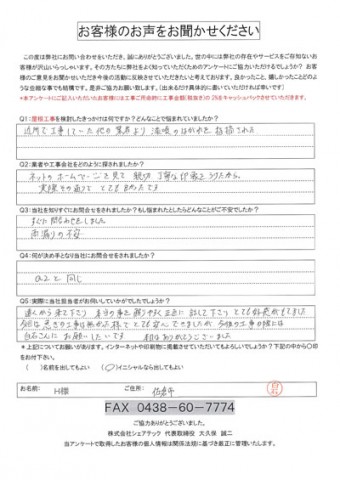 お客様のお声をお聞かせください
この度は弊社にお問い合わせをいただき、誠にありがとうございました。世の中には弊社の存在やサービスをご存知ないお
客様が沢山いらっしゃいます。その方たちに弊社をよく知っていただくためのアンケートにご協力いただけるでしょうか？ お客
様のご意見をお聞かせいただき今後の活動に反映させていただきたいと考えております。良かったこと、嬉しかったことどのよ
うな些細な事でも結構です。是非ご協力お願い致します。（出来るだけ具体的に書いていただければ幸いです）
Q1：屋根工事を検討したきっかけは何ですか？どんなことで悩まれていましたか？
近所で工事していた他の業者より漆喰のはがれを指摘された
Q2：業者や工事会社をどのように探されましたか？
ネットのホームページを見て 親切 丁寧な印象をうけたから。
実際その通りで とても
Q3：当社を知りすぐにお問合せをされましたか？もし悩まれたとしたらどんなことがご不安でしたか？
すぐに問合わせをしました
雨漏りの不安
Q4：何が決め手となり当社にお問合せをされましたか？
Q2と同じ
Q5：実際に当社担当者がお伺いしていかがでしたでしょうか？
遠くから来て下さり
とても好感がもてました
白石さんにお願いしたいです
ありがとうございました
＊上記についてお願いがあります。インターネットや印刷物に掲載させていただいてもよろしいでしょうか？下記の中から〇印
をお付け下さい。
（ ）名前を出してもよい （〇）イニシャルなら出してもよい
お名前： H様 ご住所： 佐倉市
FAX 0438-60-7774
ご協力ありがとうございました。
株式会社シェアテック 代表取締役 大久保 誠二
当アンケートで取得したお客様の個人情報は関係法規に基づき厳正に管理いたします。